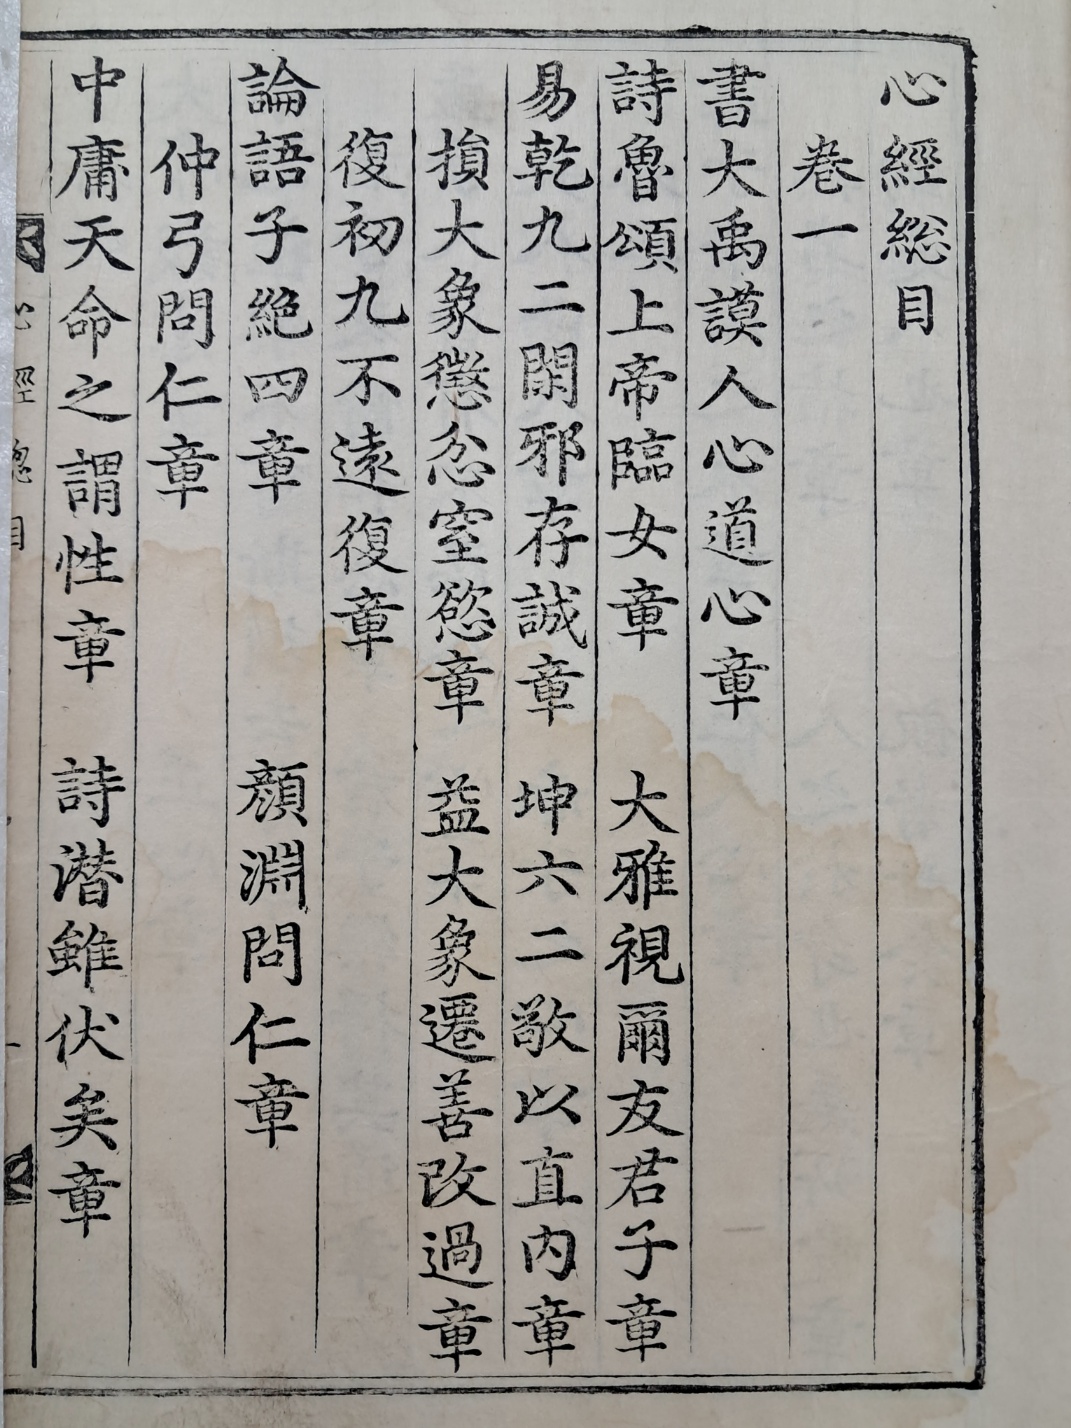 心經総目
卷一
書大禹謨人心道心章
詩魯頌上帝臨女章　大雅視爾友君子章
易乾九二閑邪存誠章　坤六二敬以直內章
損大象懲忿窒慾章　益大象遷善改過章
復初九不遠復章
論語子絶四章　顔淵問仁章
仲弓問仁章
中庸天命之謂性章　詩潜雖伏矣章
心經總目　一